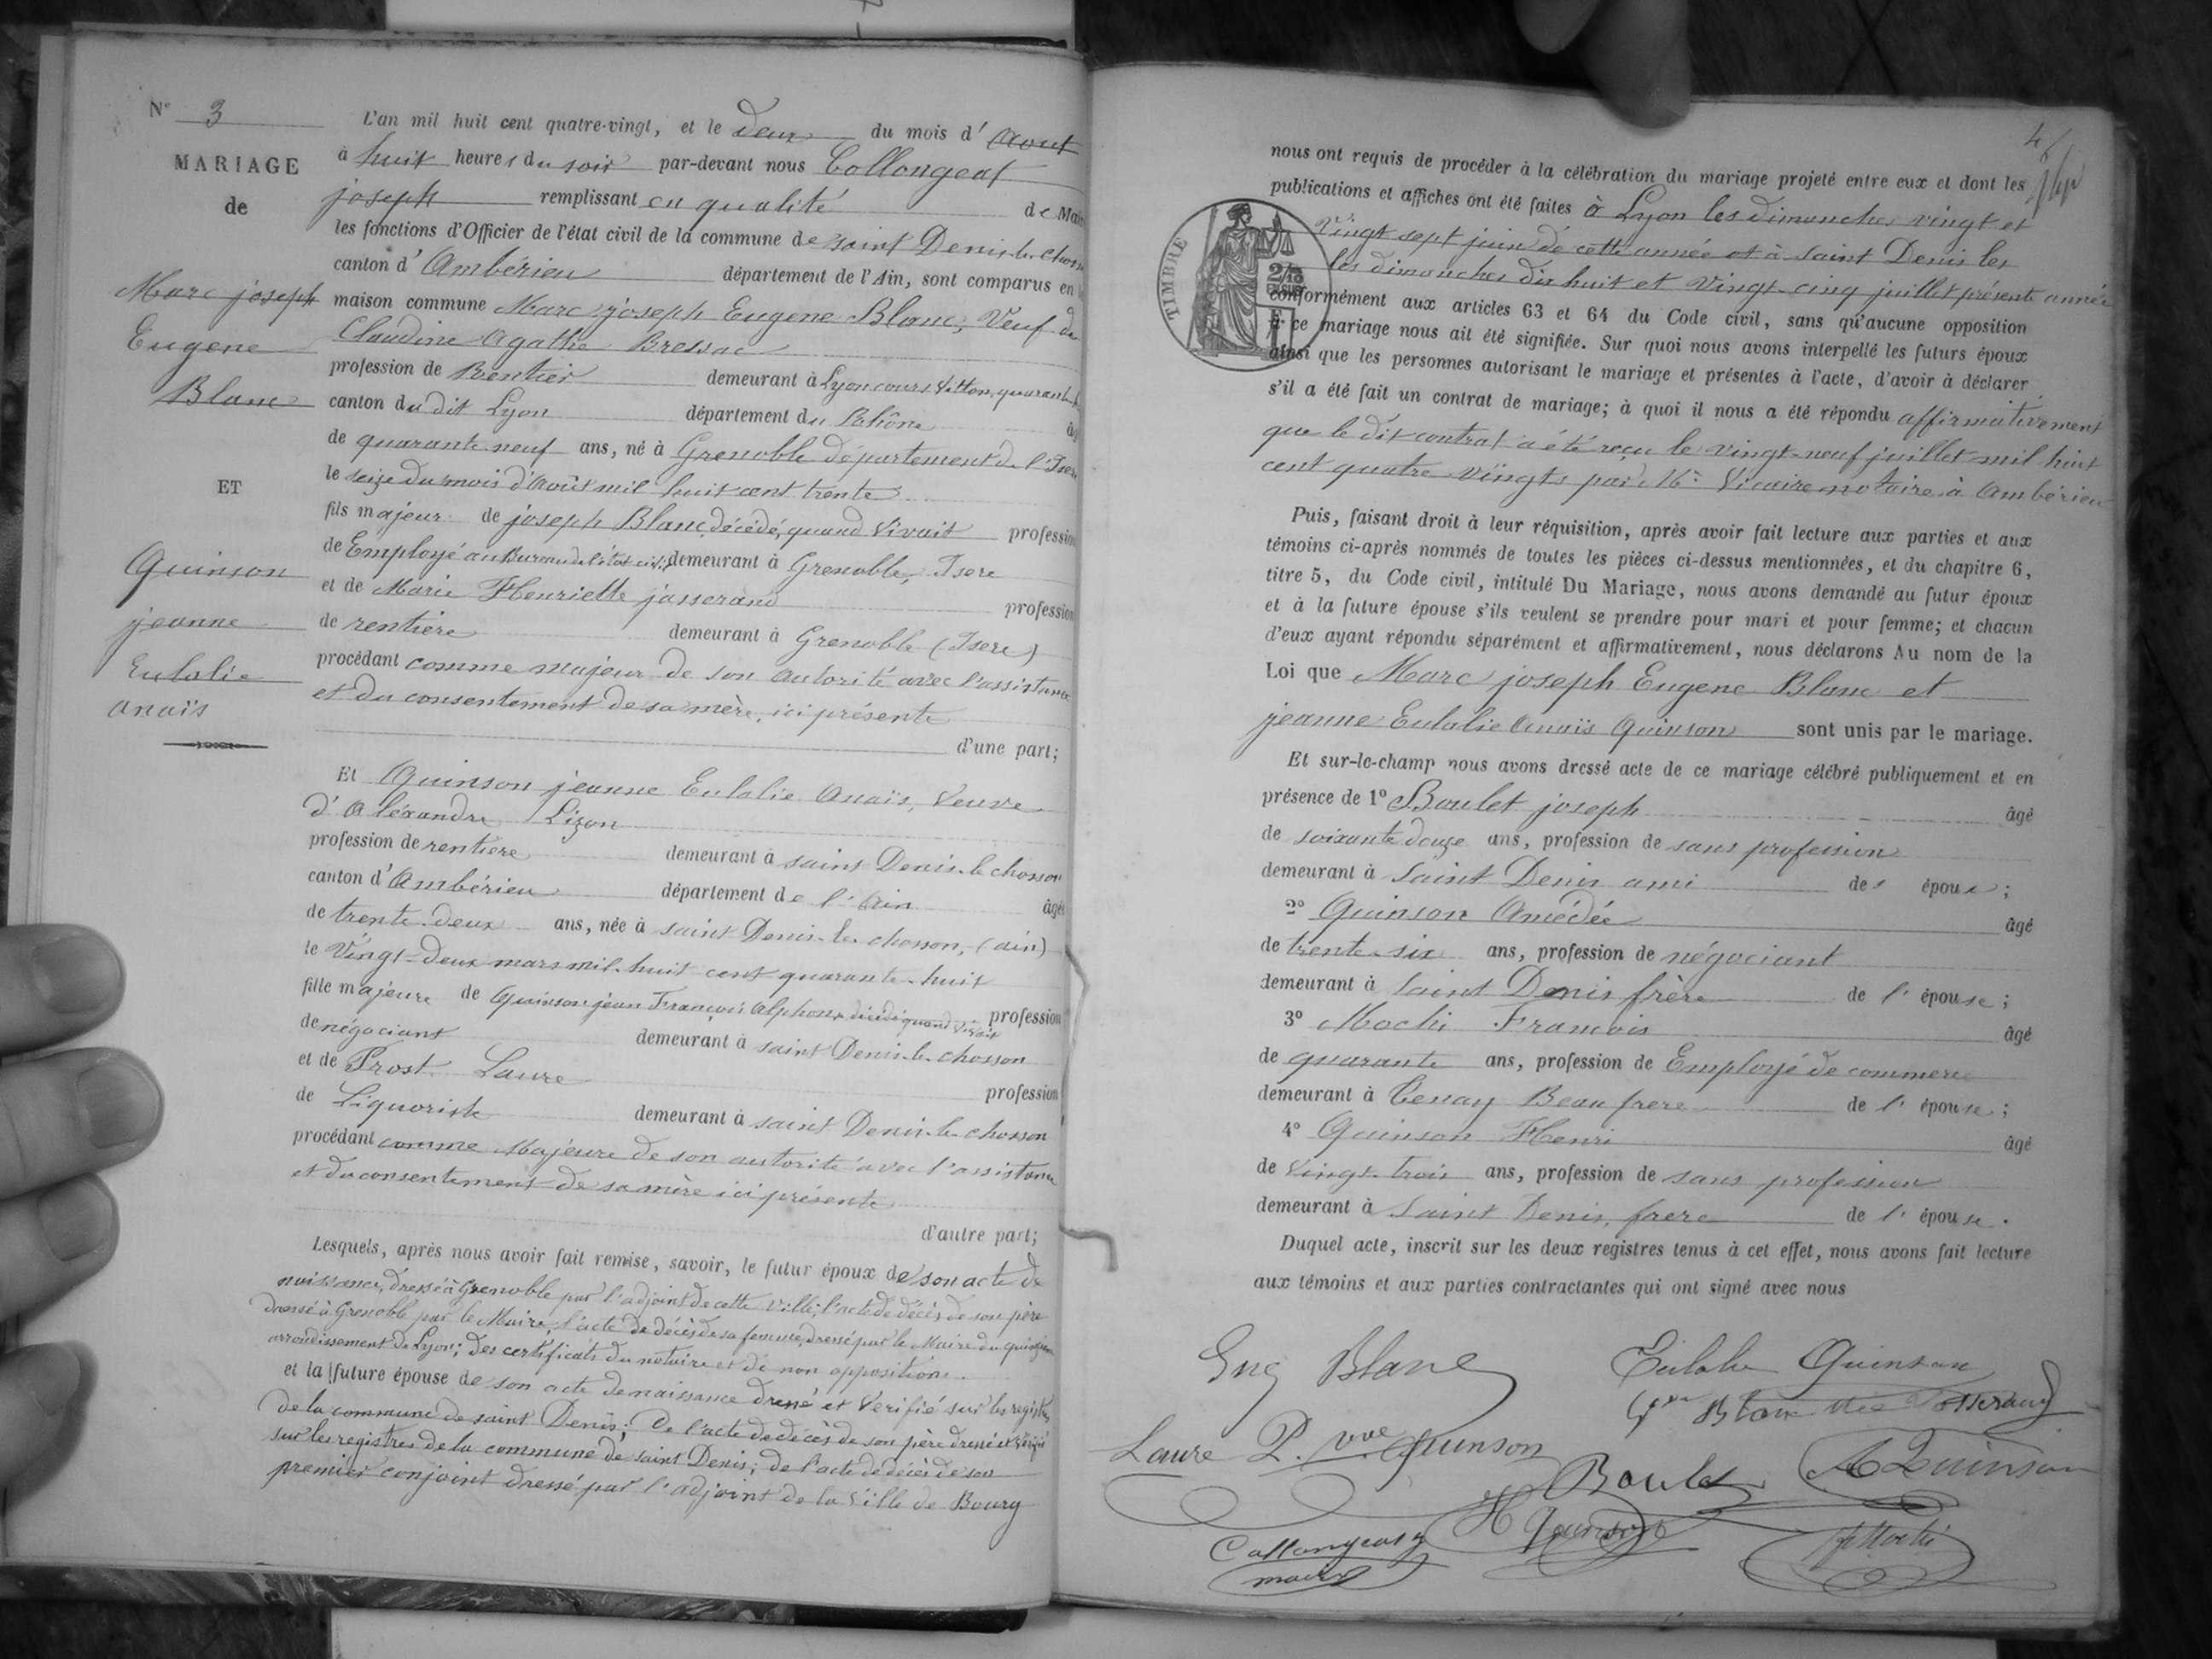 N° 3
MARIAGE
de
Marc joseph
Eugene
Blanc
ET
Quinson
jeanne
Eulalie
anaïs
L'an mil huit cent quatre-vingt, et le deux du mois d'Aout
à huit heures du soir par-devant nous Collongeat
joseph remplissant en qualité de Mai
les fonctions d'Officier de l'état civil de la commune de saint Denis-le-chosson
canton d'Ambérieu département de l'Ain, sont comparus en
maison commune Marc joseph Eugene Blanc, Veuf de
Claudine Agathe Bressac
profession de Rentier demeurant à Lyon cours Vitton, quarante
canton du dit Lyon département du Rhône
de quarante-neuf ans, né à Grenoble département de l'Isere
le seize du mois d'Août mil huit cent trente
fils majeur de joseph Blanc, décédé, quand Vivait profession
de Employé au Bureau de l'état civil demeurant à Grenoble, Isere
et de Marie Henriette jasserand profession
de rentière demeurant à Grenoble (Isere)
procédant comme majeur de son autorité avec l'assistance
et du consentement de sa mère, ici présente
d'une part;
Et Quinson jeanne Eulalie Anaïs, Veuve
d'Aléxandre Lizon
profession de rentière demeurant à saint Denis-le chosson
canton d'Ambérieu département de l'Ain âgée
de trente-deux ans, née à saint Denis-le-chosson, (ain)
le Vingt-deux mars mil-huit cent quarante-huit
fille majeure de Quinson jean François Alphonse décédé quand vivait profession
de négociant demeurant à saint Denis-le-chosson
et de Prost Laure profession
de Liquoriste demeurant à saint Denis-le-chosson
procédant comme Majeure de son autorité avec l'assistance
et du consentement de sa mère ici présente
d'autre part;
Lesquels, après nous avoir fait remise, savoir, le futur époux de son acte de
naissance, dressé à Grenoble par l'adjoint de cette ville; l'acte de décès de son père
dressé à Grenoble par le Maire, l'acte de décès de sa femme, dressé par le Maire du
arrondissement de Lyon; des certificats du notaire et de non opposition.
et la future épouse de son acte de naissance dressé et Verifié sur les registres
de la commune de saint Denis; De l'acte de décès de son père dressé et Vérifié
sur les registres de la commune de saint Denis; de l'acte de décès de son
premier conjoint dressé par l'adjoint de la Ville de Bourg
4
nous ont requis de procéder à la célébration du mariage projeté entre eux et dont les
publications et affiches ont été faites à Lyon les dimanches vingt et
Vingt sept juin de cette année et à saint Denis les
les dimanches dix huit et Vingt-cinq juillet présente année
TIMBRE
conformément aux articles 63 et 64 du Code civil, sans qu'aucune opposition
à ce mariage nous ait été signifiée. Sur quoi nous avons interpellé les futurs époux
ainsi que les personnes autorisant le mariage et présentes à l'acte, d'avoir à déclarer
s'il a été fait un contrat de mariage; à quoi il nous a été répondu affirmativement
que le dit contrat a été reçu le vingt-neuf juillet mil huit
cent quatre vingts par Me Vicaire notaire à Ambérieu
Puis, faisant droit à leur réquisition, après avoir fait lecture aux parties et aux
témoins ci-après nommés de toutes les pièces ci-dessus mentionnées, et du chapitre 6,
titre 5, du Code civil, intitulé Du Mariage, nous avons demandé au futur époux
et à la future épouse s'ils veulent se prendre pour mari et pour femme; et chacun
d'eux ayant répondu séparément et affirmativement, nous déclarons Au nom de la
Loi que Marc joseph Eugene Blanc et
jeanne Eulalie Anaïs Quinson sont unis par le mariage.
Et sur-le-champ nous avons dressé acte de ce mariage célébré publiquement et en
présence de 1° Boulet joseph âgé
de soixante douze ans, profession de sans profession
demeurant à Saint Denis ami des époux;
2° Quinson Amédée âgé
de trente-six ans, profession de négociant
demeurant à Saint Denis frère de l'épouse;
3° Mochi Francois âgé
de quarante ans, profession de Employé de commerce
demeurant à Tenay Beau frere de l'épouse;
4° Quinson Henri âgé
de Vingt-trois ans, profession de sans profession
demeurant à Saint Denis, frere de l'épouse.
Duquel acte, inscrit sur les deux registres tenus à cet effet, nous avons fait lecture
aux témoins et aux parties contractantes qui ont signé avec nous
Eug Blanc
Eulalie Quinson
Blanc née Jasserand
Laure P. vve Quinson
Boulet
A Quinson
Collongeat
maire
H Quinson
f Mochi